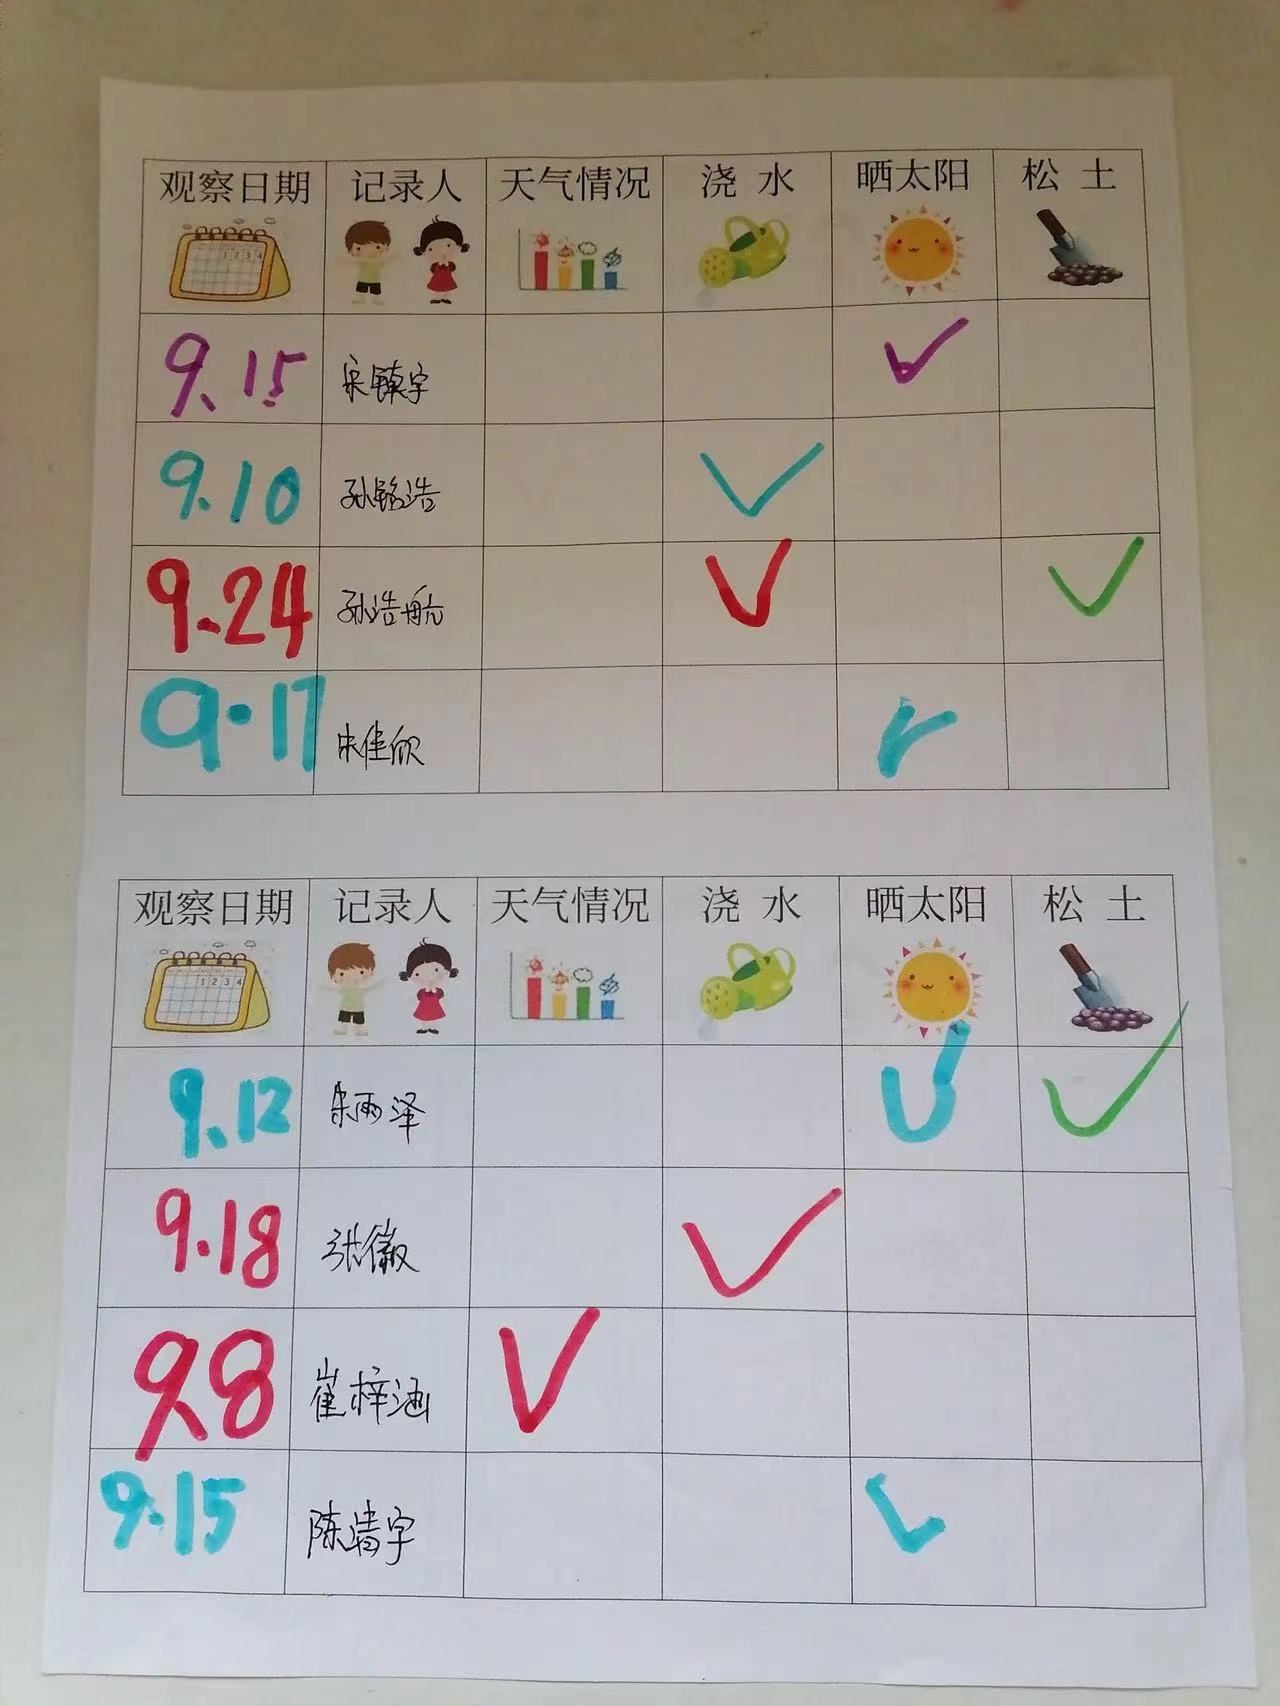 观察日期 记录人 天气情况 浇 水 晒太阳 松 土
1 2 3 4
9.15 宋镇宇 ✓
9.10 孙铭浩 ✓
9.24 孙浩航 ✓ ✓
9.17 宋佳欣
观察日期 记录人 天气情况 浇 水 晒太阳 松 土
1 2 3 4
9.12 朱雨泽 ✓ ✓
9.18 张徽 ✓
9.8 崔梓涵 ✓
9.15 陈清宇 ✓